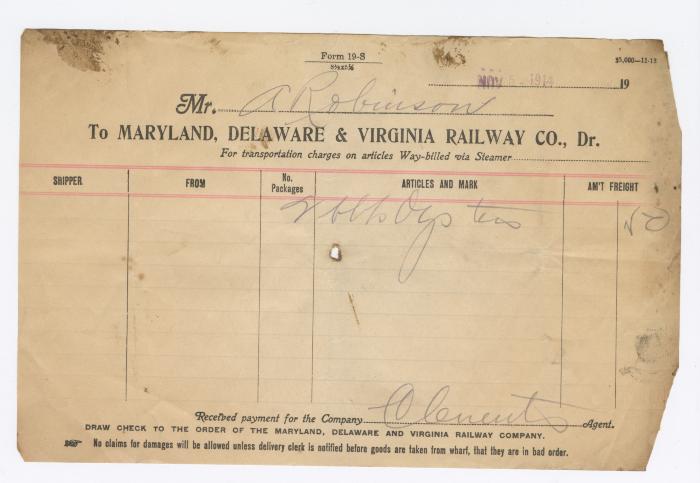 Form 19-S
8½x5½
$5,000—12-13
NOV 5 - 1914 19
Mr. A Robinson
To MARYLAND, DELAWARE & VIRGINIA RAILWAY CO., Dr.
For transportation charges on articles Way-billed via Steamer
SHIPPER FROM No. Packages ARTICLES AND MARK AM'T FREIGHT
2 bbls Oysters 50
Received payment for the Company Clements Agent.
DRAW CHECK TO THE ORDER OF THE MARYLAND, DELAWARE AND VIRGINIA RAILWAY COMPANY.
No claims for damages will be allowed unless delivery clerk is notified before goods are taken from wharf, that they are in bad order.